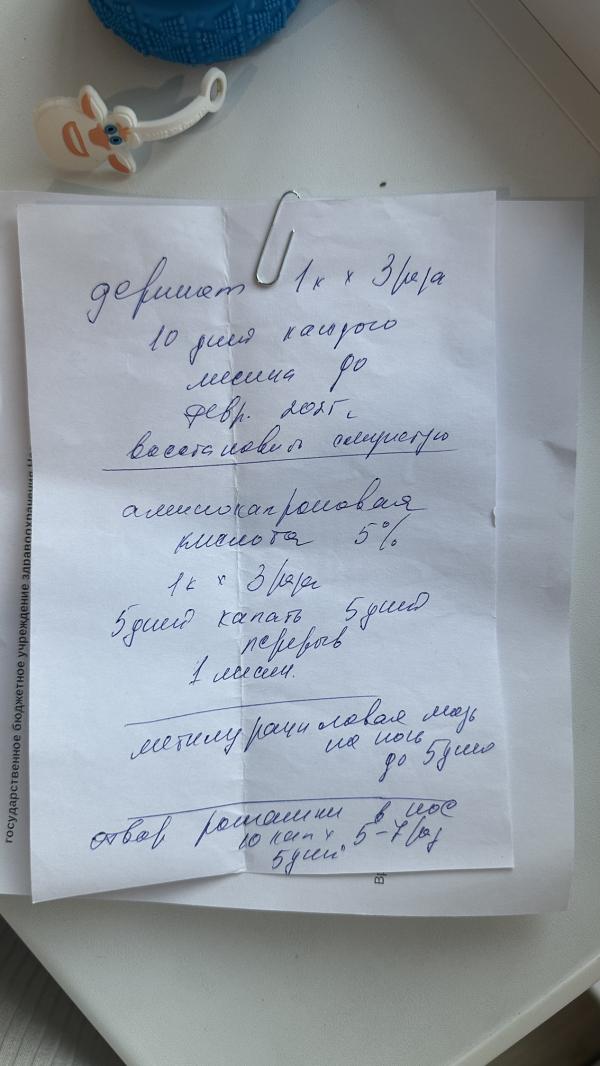 деринат 1к х 3 раза
10 дней каждого
месяца до
февр. 2025г.
восстановить слизистую
аминокапроновая
кислота 5%
1к х 3 раза
5 дней капать 5 дней
перерыв
1 месяц.
метилурациловая мазь
на ночь
до 5 дней
отвар ромашки в нос
10 кап х 5-7 раз
5 дней
государственное бюджетное учреждение здравоохранения